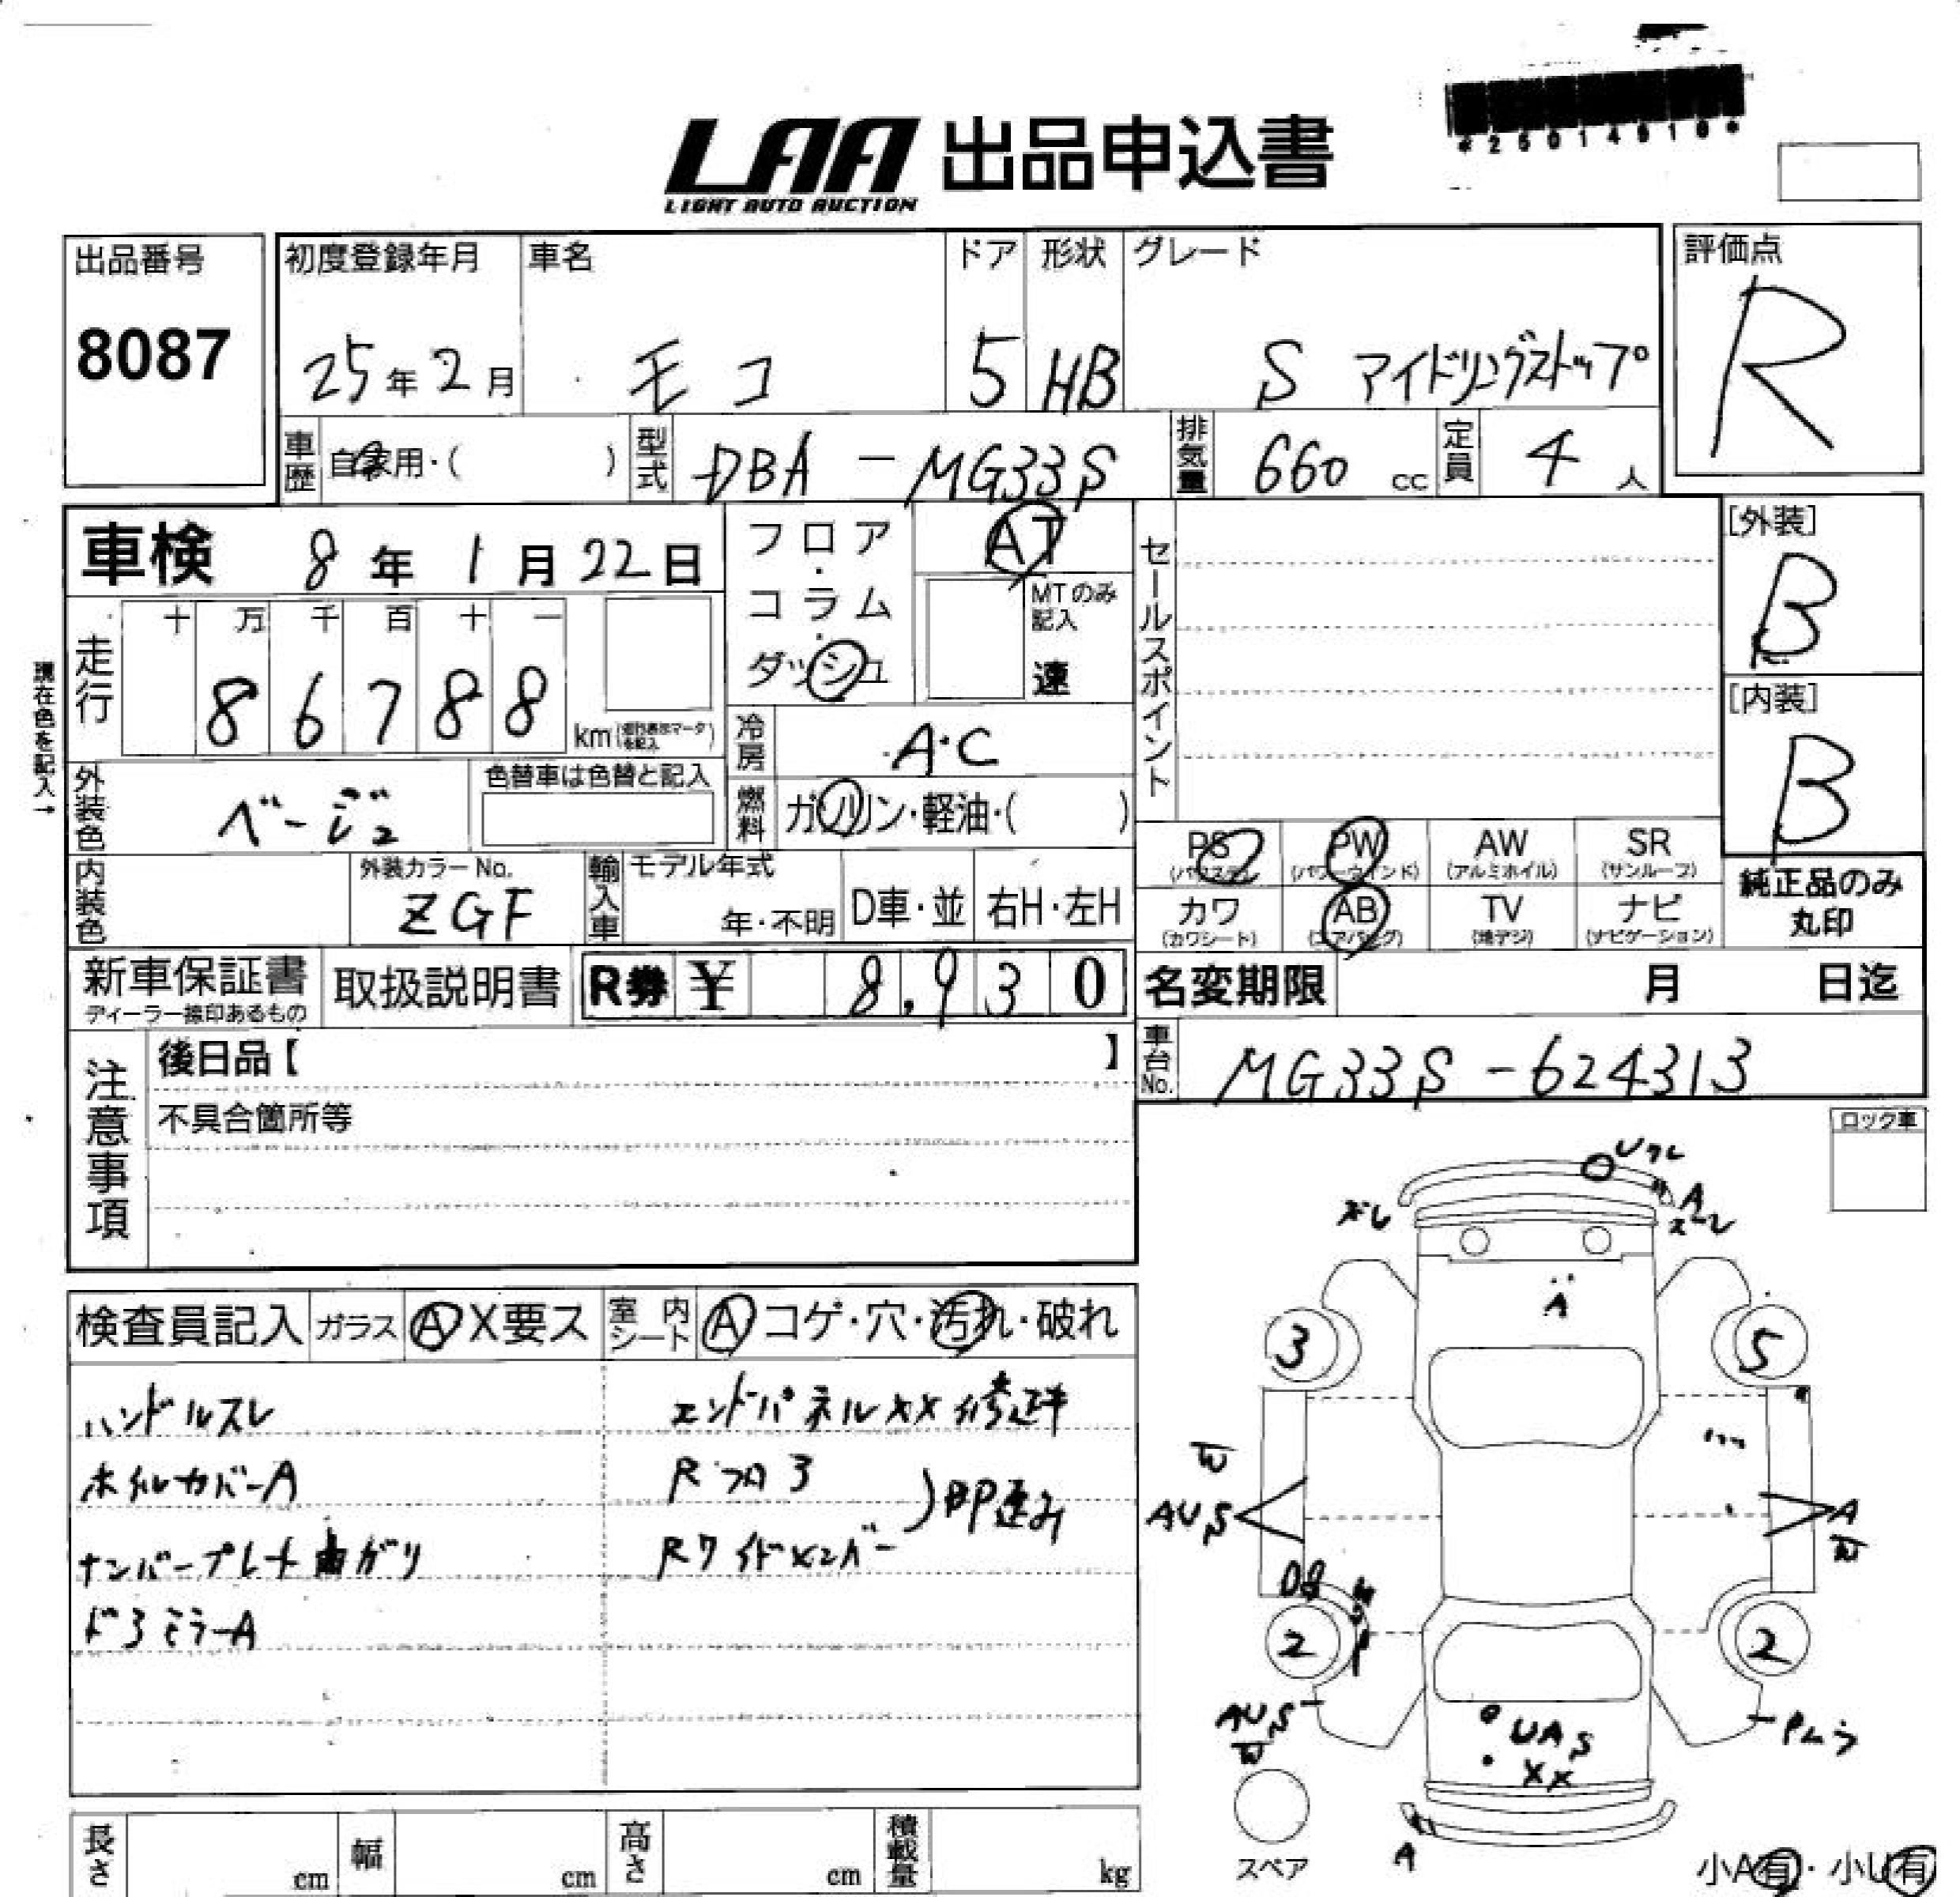 LAA 出品申込書
LIGHT AUTO AUCTION
出品番号
8087
初度登録年月
25年2月
車名
モコ
ドア
5
形状
HB
グレード
S アイドリングストップ
評価点
R
車歴 自家用・( )
型式 DBA-MG33S
排気量 660 cc
定員 4 人
車検 8年1月22日
フロア・コラム・ダッシュ
AT
MTのみ記入
速
セールスポイント
[外装]
B
[内装]
B
現在色を記入→
走行
十 万 千 百 十 一
8 6 7 8 8
km
冷房 A・C
外装色 ベージュ
色替車は色替と記入
燃料 ガソリン・軽油・( )
PS PW AW SR
(パワステ) (パワーウインド) (アルミホイル) (サンルーフ)
カワ AB TV ナビ
(カワシート) (エアバッグ) (地デジ) (ナビゲーション)
純正品のみ
丸印
内装色
外装カラーNo.
ZGF
輸入車
モデル年式
年・不明
D車・並
右H・左H
新車保証書
ディーラー捺印あるもの
取扱説明書
R券 ¥ 8,930
名変期限 月 日迄
車台No. MG33S-624313
注意事項
後日品【 】
不具合箇所等
ロック車
検査員記入 ガラス A X要ス
室内シート A コゲ・穴・汚れ・破れ
ハンドルスレ
ホイルカバーA
ナンバープレート曲がり
ドアミラーA
エンドパネルXX修正キ
Rフロア
Rサイドメンバー
)即歪み
ズレ
A
ズレ
A
3
5
W
AUS
A
W
2
2
AUS
W
Pムラ
UAS
XX
A
スペア
小A有・小U有
長さ cm
幅 cm
高さ cm
積載量 kg